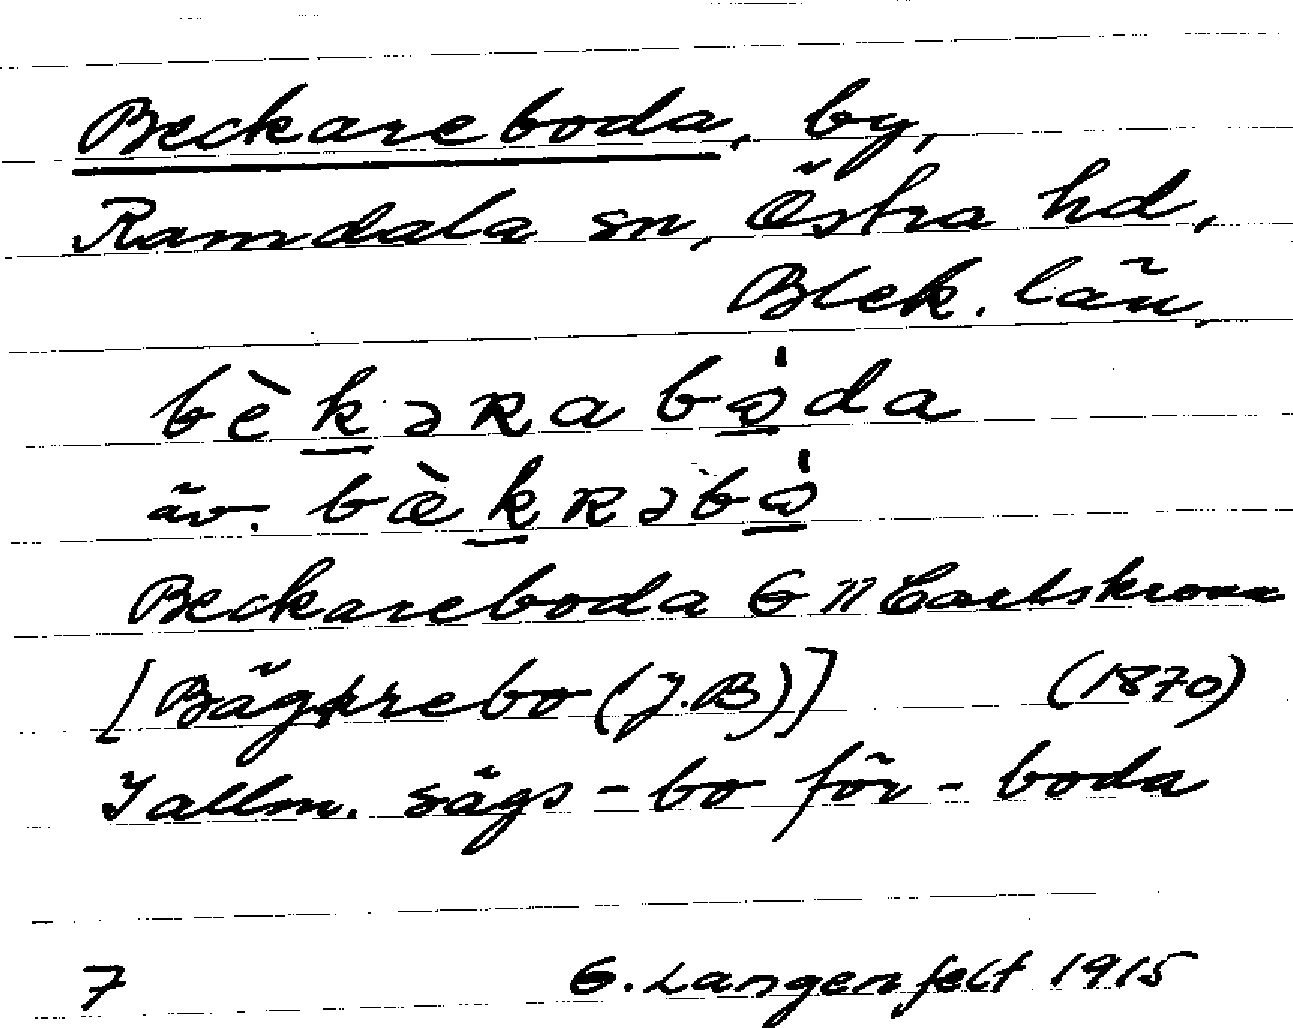 Beckareboda, by,
Ramdala sn, Östra hd,
Blek. län,
bèkəʀabǫ̀da
äv. bæ̀kʀəbǫ̀
Beckareboda G II Carlskrona
[Bägarebo (J.B)] (1870)
I allm. sägs -bo för -boda
7 G. Langenfelt 1915